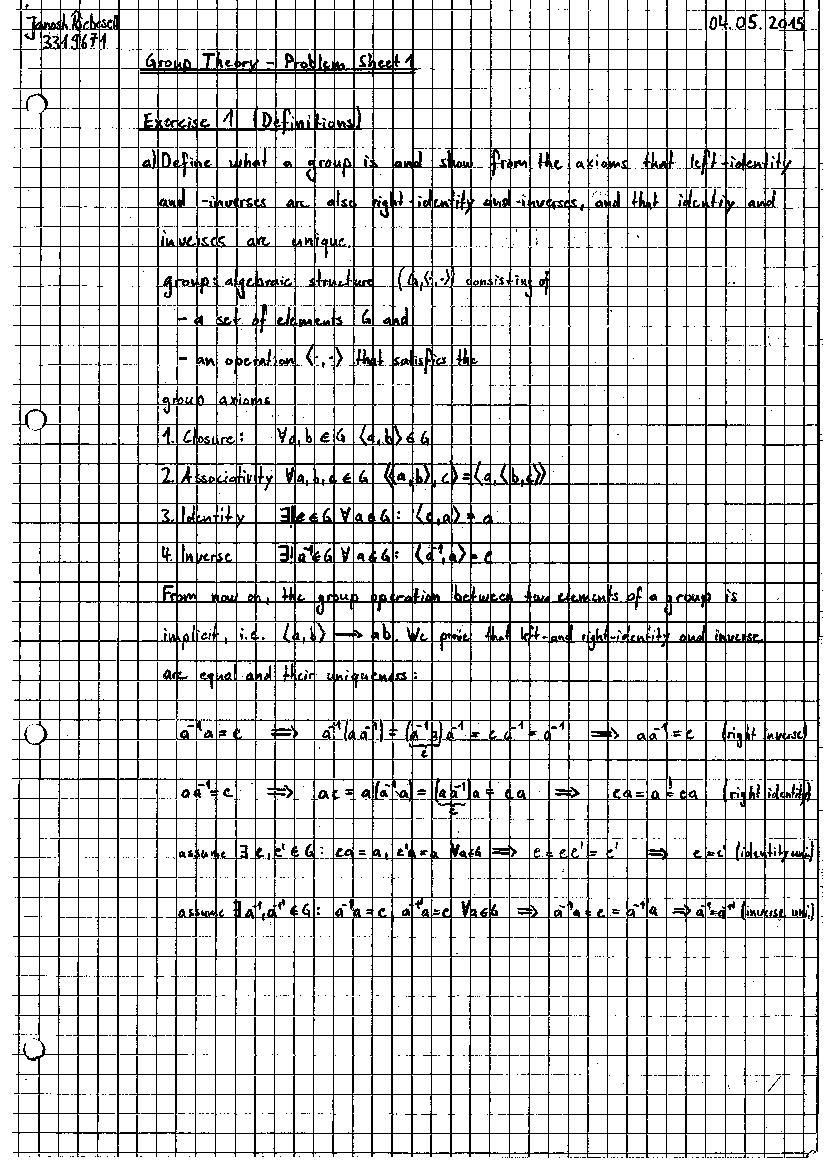 Janosh Riebesell
3319671
04.05.2015
Group Theory – Problem Sheet 1
Exercise 1 (Definitions)
a) Define what a group is and show from the axioms that left-identity
and -inverses are also right-identity and -inverses, and that identity and
inverses are unique.
group: algebraic structure (G,⟨·,·⟩) consisting of
- a set of elements G and
- an operation ⟨·,·⟩ that satisfies the
group axioms
1. Closure: ∀a,b ∈ G ⟨a,b⟩ ∈ G
2. Associativity ∀a,b,c ∈ G ⟨⟨a,b⟩,c⟩ = ⟨a,⟨b,c⟩⟩
3. Identity ∃!e∈G ∀a∈G: ⟨e,a⟩ = a
4. Inverse ∃!a⁻¹∈G ∀a∈G: ⟨a⁻¹,a⟩ = e
From now on, the group operation between two elements of a group is
implicit, i.e. ⟨a,b⟩ → ab. We prove that left- and right-identity and inverse
are equal and their uniqueness:
a⁻¹a = e ⟹ a⁻¹(aa⁻¹) = (a⁻¹a)a⁻¹ = ea⁻¹ = a⁻¹ ⟹ aa⁻¹ = e (right inverse)
e
aa⁻¹ = e ⟹ ae = a(a⁻¹a) = (aa⁻¹)a = ea ⟹ ea = a = ea (right identity)
e
assume ∃ e,e' ∈ G: ea = a, e'a = a ∀a∈G ⟹ e = ee' = e' ⟹ e = e' (identity uni.)
assume ∃ a⁻¹,a⁻¹' ∈ G: a⁻¹a = e, a⁻¹'a = e ∀a∈G ⟹ a⁻¹a = e = a⁻¹'a ⟹ a⁻¹ = a⁻¹' (inverse uni.)